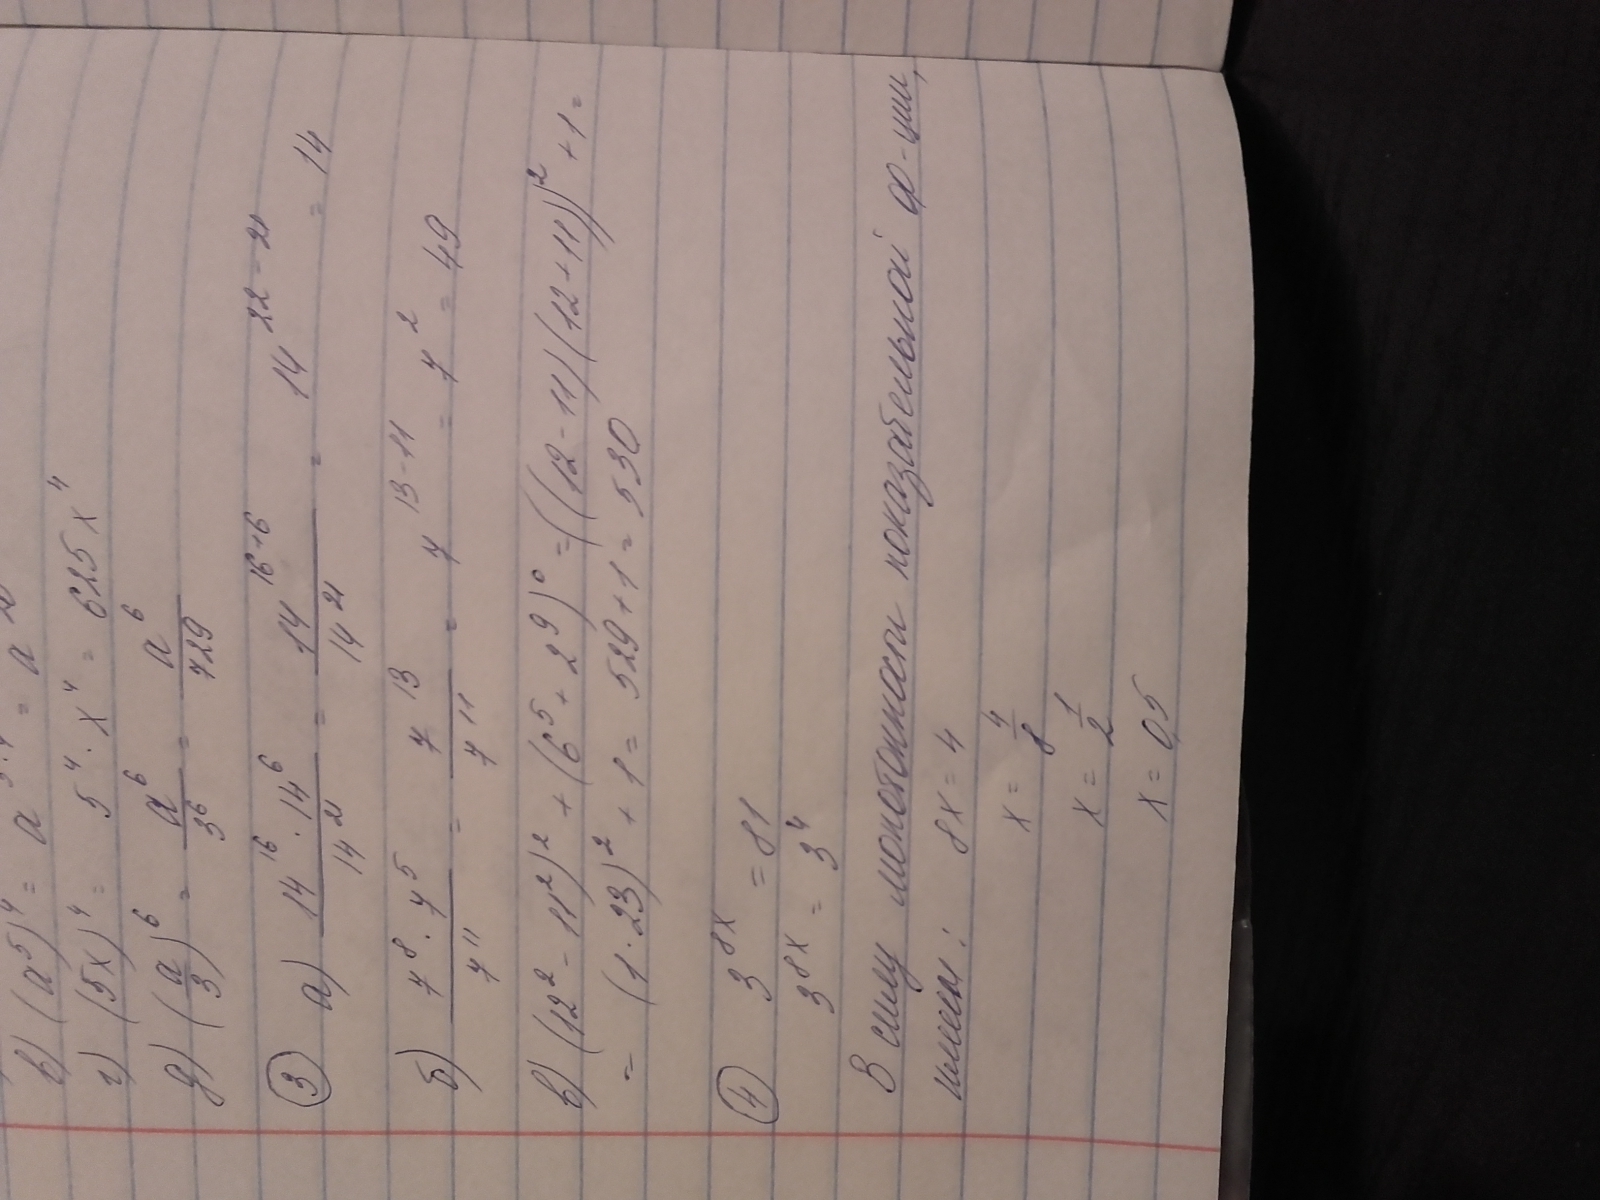 в) (a⁵)⁴ = a⁵·⁴ = a²⁰
г) (5x)⁴ = 5⁴ · x⁴ = 625x⁴
д) (a/3)⁶ = a⁶/3⁶ = a⁶/729
③ а) 14¹⁶ · 14⁶ / 14²¹ = 14¹⁶⁺⁶ / 14²¹ = 14²²⁻²¹ = 14
б) 7⁸ · 7⁵ / 7¹¹ = 7¹³ / 7¹¹ = 7¹³⁻¹¹ = 7² = 49
в) (12² - 11²)² + (6⁵ + 29)⁰ = ((12 - 11)(12 + 11))² + 1 =
= (1 · 23)² + 1 = 529 + 1 = 530
④ 3⁸ˣ = 81
3⁸ˣ = 3⁴
В силу монотонности показательной ф-ции,
имеем: 8x = 4
x = 4/8
x = 1/2
x = 0,5